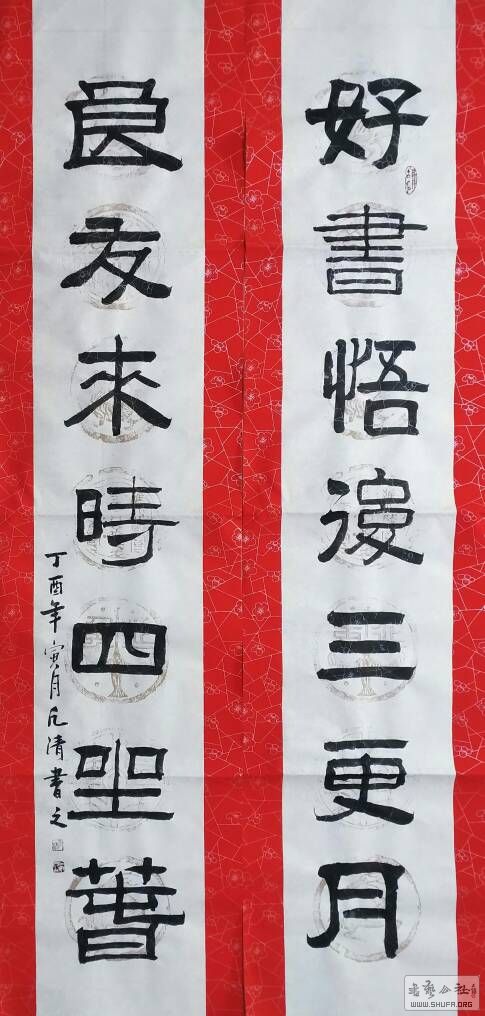 好書悟後三更月
良友來時四坐春
丁酉年寅月凡清書之
书艺公社
WWW.SHUFA.ORG